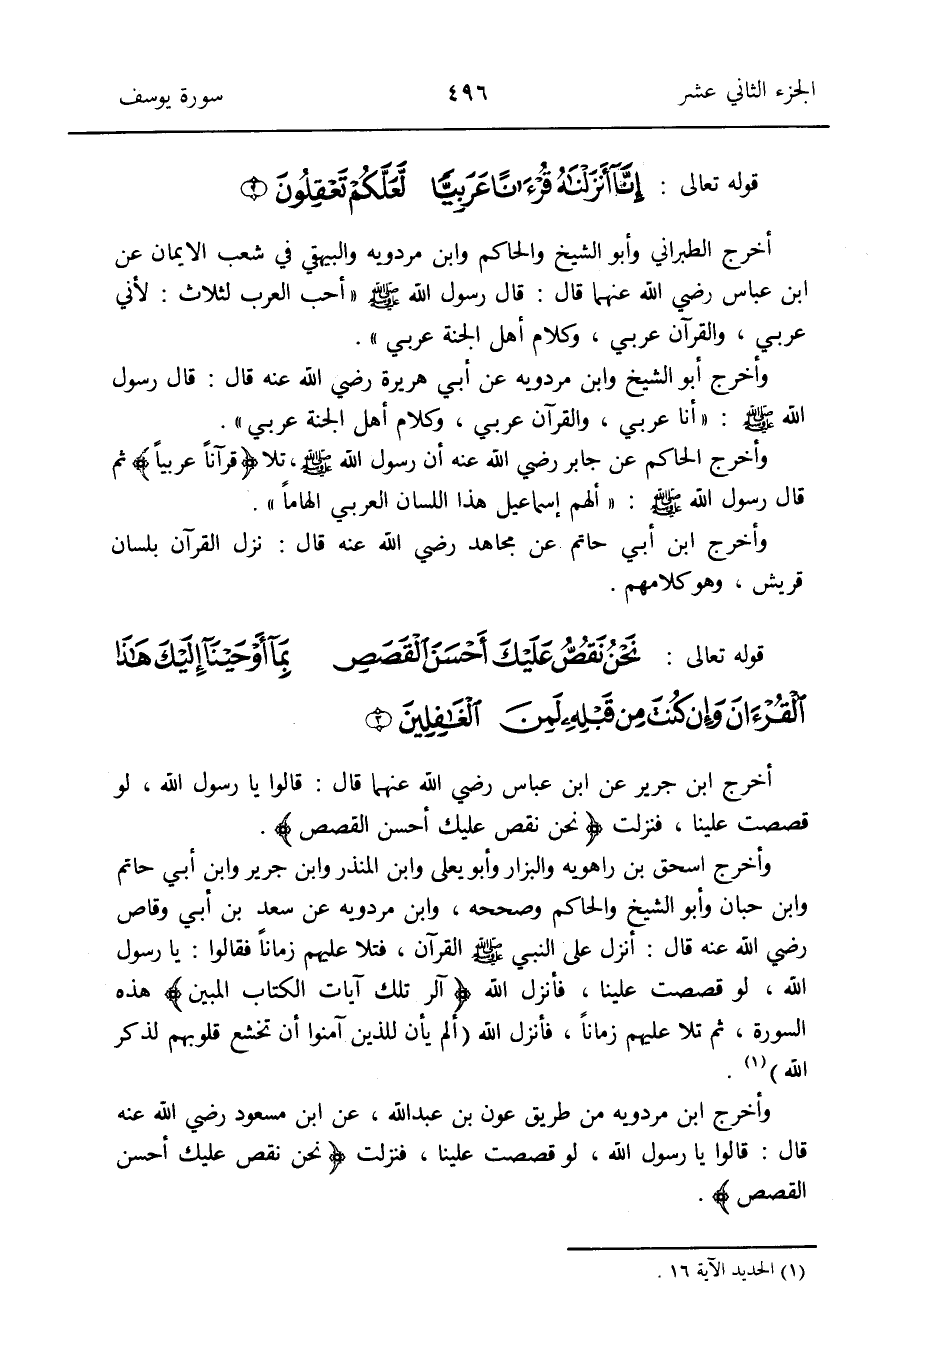 الجزء الثاني عشر ٤٩٦ سورة يوسف
قوله تعالى : إِنَّآ أَنزَلْنَٰهُ قُرْءَٰنًا عَرَبِيًّا لَّعَلَّكُمْ تَعْقِلُونَ ﴿٢﴾
أخرج الطبراني وأبو الشيخ والحاكم وابن مردويه والبيهقي في شعب الايمان عن
ابن عباس رضي الله عنهما قال : قال رسول الله ﷺ « أحب العرب لثلاث : لأني
عربي ، والقرآن عربي ، وكلام أهل الجنة عربي » .
وأخرج أبو الشيخ وابن مردويه عن أبي هريرة رضي الله عنه قال : قال رسول
الله ﷺ : « أنا عربي ، والقرآن عربي ، وكلام أهل الجنة عربي» .
وأخرج الحاكم عن جابر رضي الله عنه أن رسول الله ﷺ، تلا ﴿قرآناً عربياً﴾ ثم
قال رسول الله ﷺ : « ألهم إسماعيل هذا اللسان العربي الهاماً » .
وأخرج ابن أبي حاتم عن مجاهد رضي الله عنه قال : نزل القرآن بلسان
قريش ، وهو كلامهم .
قوله تعالى : نَحْنُ نَقُصُّ عَلَيْكَ أَحْسَنَ ٱلْقَصَصِ بِمَآ أَوْحَيْنَآ إِلَيْكَ هَٰذَا
ٱلْقُرْءَانَ وَإِن كُنتَ مِن قَبْلِهِۦ لَمِنَ ٱلْغَٰفِلِينَ ﴿٣﴾
أخرج ابن جرير عن ابن عباس رضي الله عنهما قال : قالوا يا رسول الله ، لو
قصصت علينا ، فنزلت ﴿نحن نقص عليك أحسن القصص﴾ .
وأخرج اسحق بن راهويه والبزار وأبو يعلى وابن المنذر وابن جرير وابن أبي حاتم
وابن حبان وأبو الشيخ والحاكم وصححه ، وابن مردويه عن سعد بن أبي وقاص
رضي الله عنه قال : أنزل على النبي ﷺ القرآن ، فتلا عليهم زماناً فقالوا : يا رسول
الله ، لو قصصت علينا ، فأنزل الله ﴿آلر تلك آيات الكتاب المبين﴾ هذه
السورة ، ثم تلا عليهم زماناً ، فأنزل الله (ألم يأن للذين آمنوا أن تخشع قلوبهم لذكر
الله )(١) .
وأخرج ابن مردويه من طريق عون بن عبدالله ، عن ابن مسعود رضي الله عنه
قال : قالوا يا رسول الله ، لو قصصت علينا ، فنزلت ﴿نحن نقص عليك أحسن
القصص﴾ .
(١) الحديد الآية ١٦ .